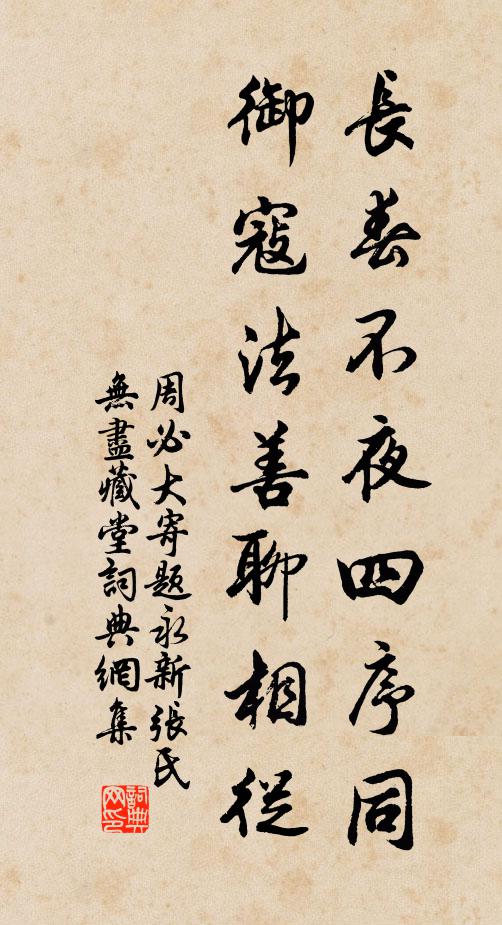 長春不夜四序同
御寇法善聊相從
周必大寄題永新張氏
無盡藏堂詞典網集
詞典
网印